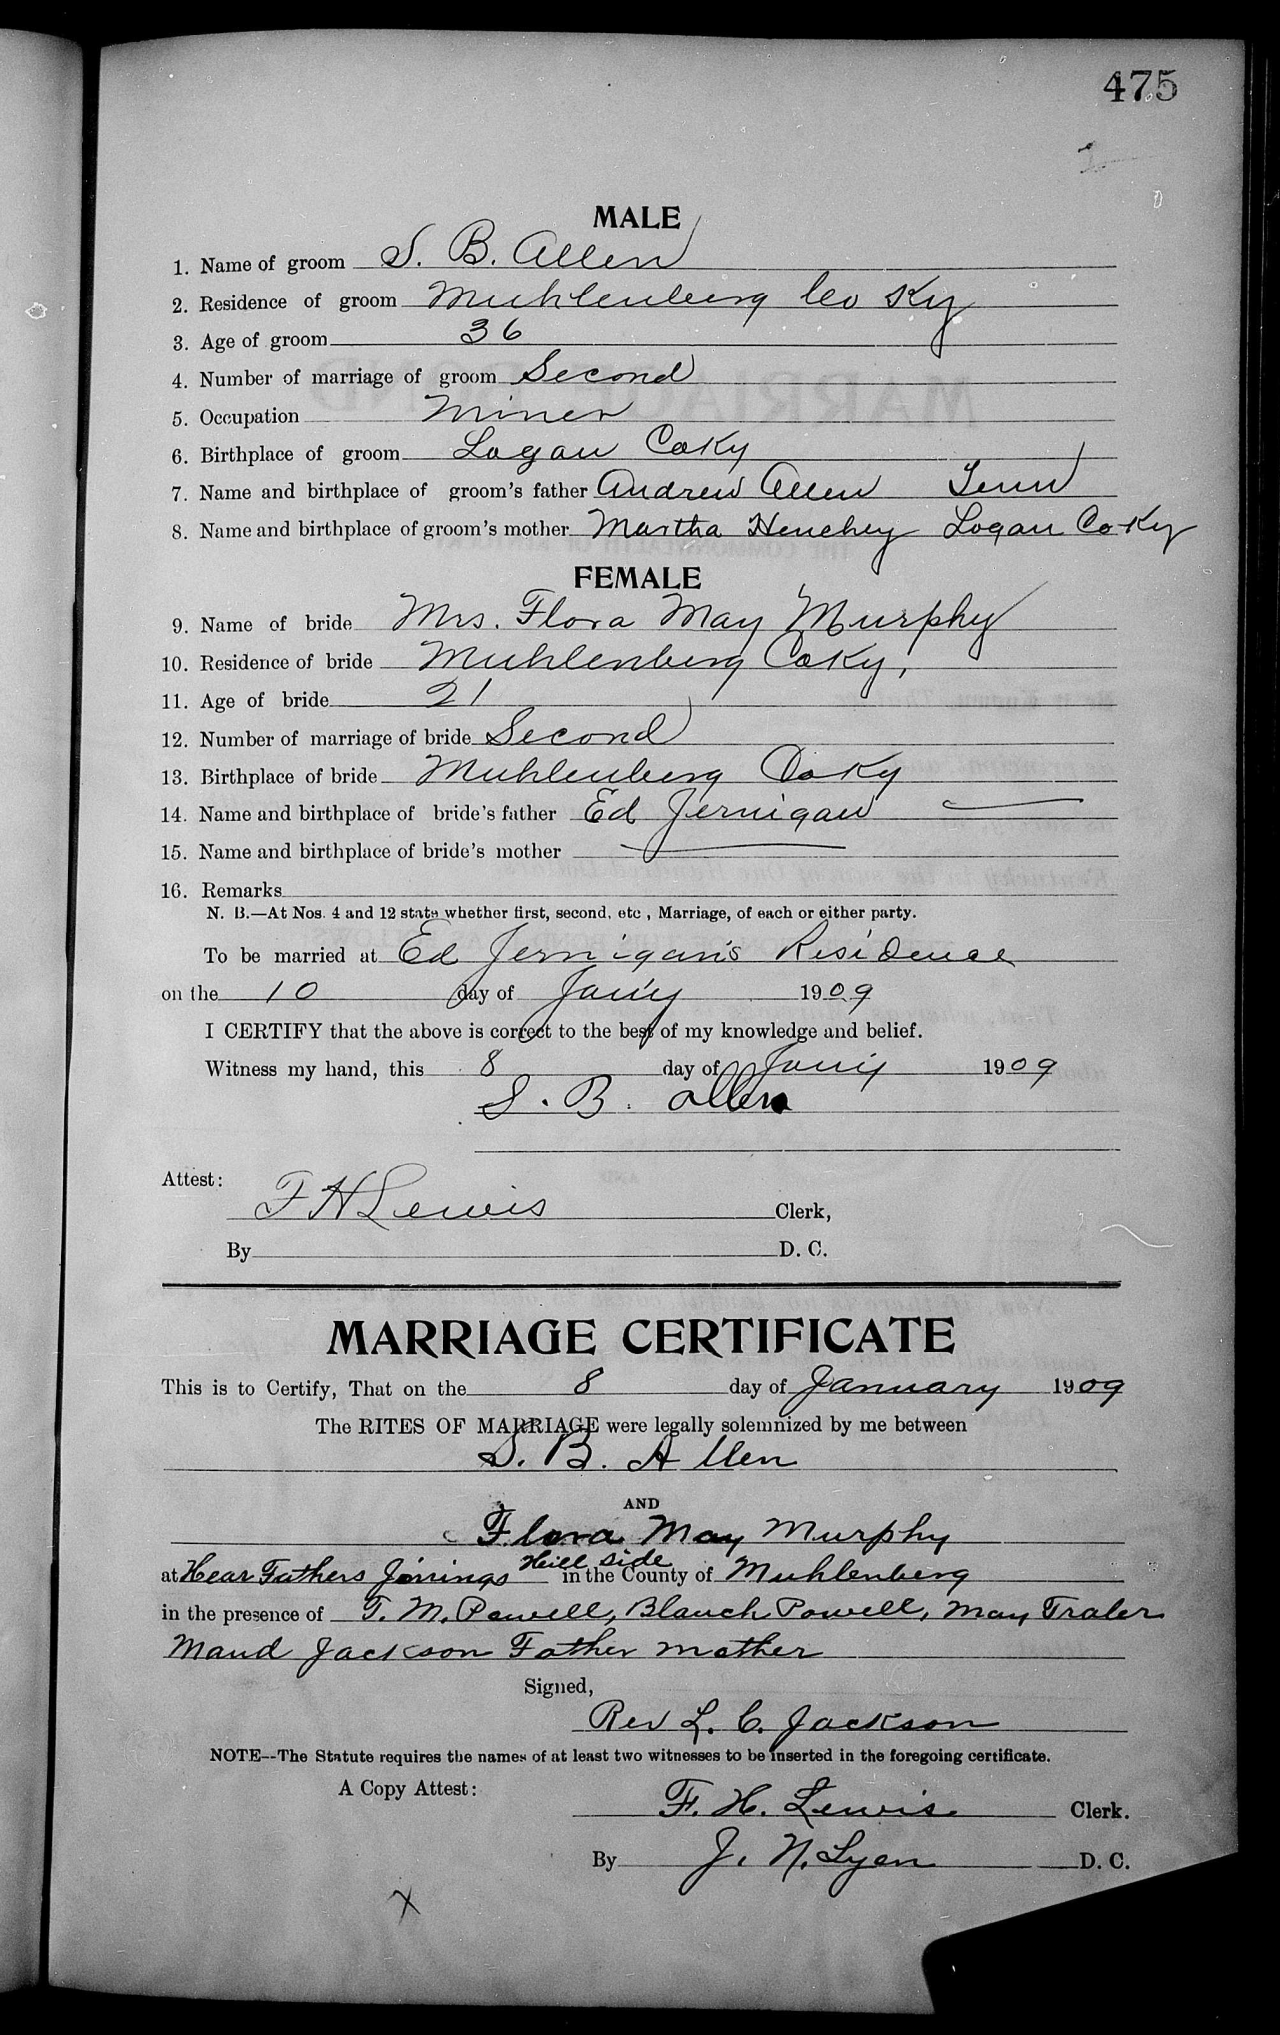 475
MALE
1. Name of groom S. B. Allen
2. Residence of groom Muhlenberg Co Ky
3. Age of groom 36
4. Number of marriage of groom Second
5. Occupation Miner
6. Birthplace of groom Logan Co Ky
7. Name and birthplace of groom's father Andrew Allen Tenn
8. Name and birthplace of groom's mother Martha Logan Co Ky
FEMALE
9. Name of bride Mrs. Flora May Murphy
10. Residence of bride Muhlenberg Co Ky,
11. Age of bride 21
12. Number of marriage of bride Second
13. Birthplace of bride Muhlenberg Co Ky
14. Name and birthplace of bride's father Ed Jernigan
15. Name and birthplace of bride's mother
16. Remarks
N. B.—At Nos. 4 and 12 state whether first, second, etc., Marriage, of each or either party.
To be married at Ed Jernigan's Residence
on the 10 day of Jan'y 1909
I CERTIFY that the above is correct to the best of my knowledge and belief.
Witness my hand, this 8 day of Jan'y 1909
S. B. Allen
Attest:
F H Lewis Clerk,
By D. C.
MARRIAGE CERTIFICATE
This is to Certify, That on the 8 day of January 1909
The RITES OF MARRIAGE were legally solemnized by me between
S. B. Allen
AND
Flora May Murphy
at Fathers Hill side in the County of Muhlenberg
in the presence of T. M. Powell, Blanch Powell, May Traler
Maud Jackson Father mother
Signed,
Rev L. C. Jackson
NOTE--The Statute requires the names of at least two witnesses to be inserted in the foregoing certificate.
A Copy Attest:
F. H. Lewis Clerk.
By J. N. Lyen D. C.
X